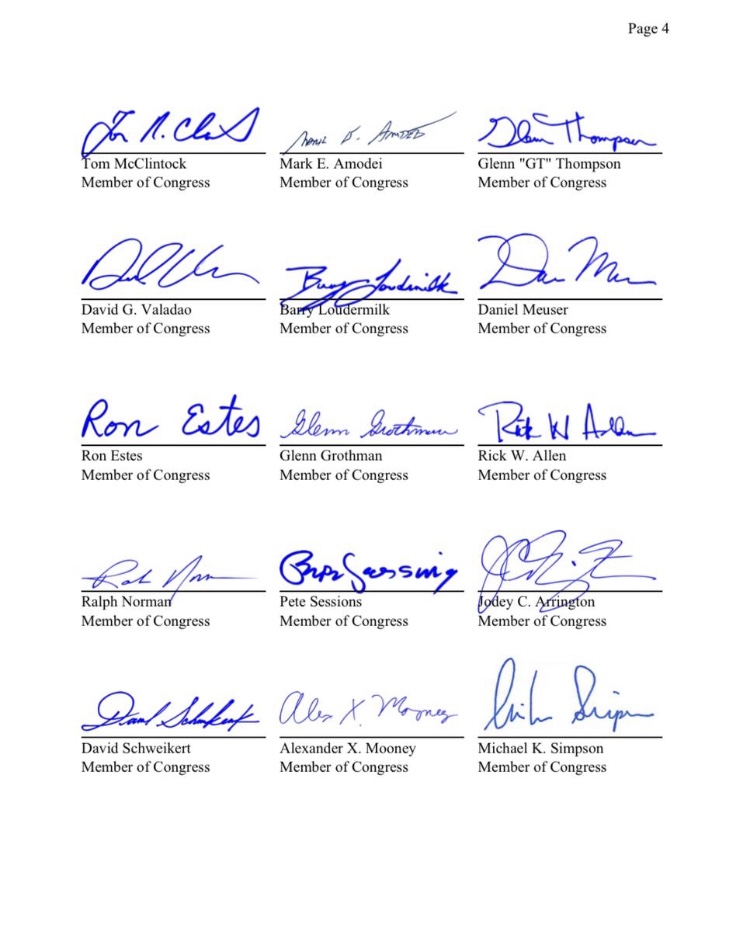 Page 4
Tom McClintock
Member of Congress
Mark E. Amodei
Member of Congress
Glenn Thompson
Glenn "GT" Thompson
Member of Congress
David G. Valadao
Member of Congress
Barry Loudermilk
Barry Loudermilk
Member of Congress
Dan Meu
Daniel Meuser
Member of Congress
Ron Estes
Ron Estes
Member of Congress
Glenn Grothman
Glenn Grothman
Member of Congress
Rick W Allen
Rick W. Allen
Member of Congress
Ralph Norman
Ralph Norman
Member of Congress
Pete Sessions
Pete Sessions
Member of Congress
Jodey C. Arrington
Member of Congress
David Schweikert
David Schweikert
Member of Congress
Alex X. Mooney
Alexander X. Mooney
Member of Congress
Michael K. Simpson
Member of Congress